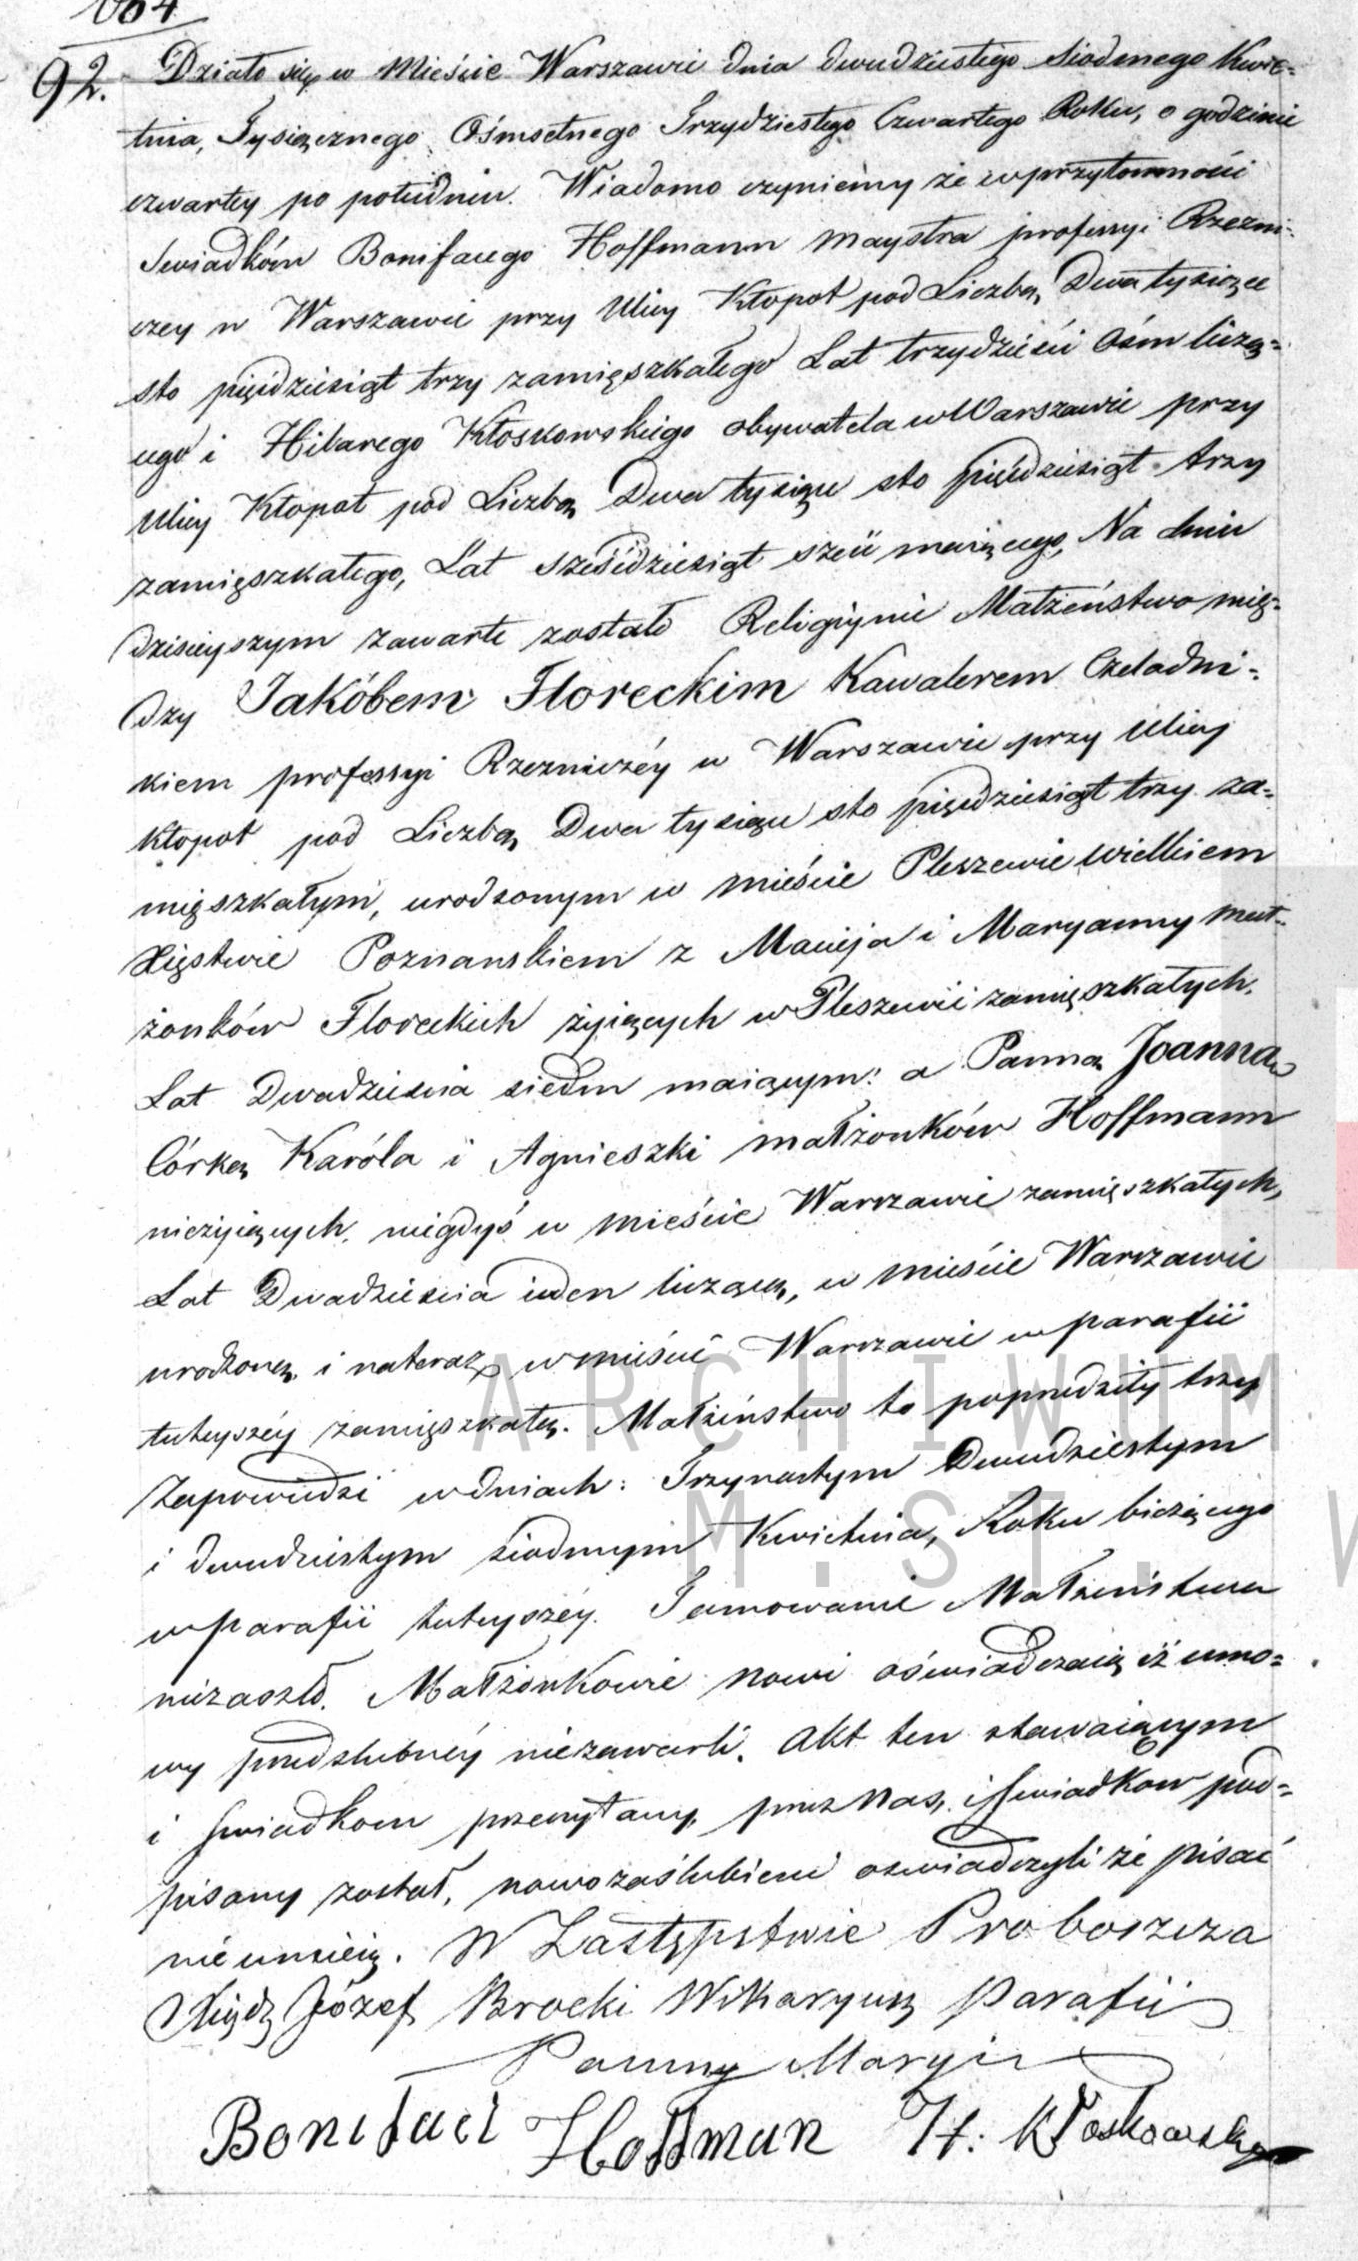 164
92. Działo się w Mieście Warszawie dnia dwudziestego Siodmego Kwie=
tnia, Tysiącznego Ośmsetnego Trzydziestego Czwartego Roku, o godzinie
czwartey po południu. Wiadomo czyniemy że w przytomności
Swiadków Bonifacego Hoffmann Maystra professyi Rzezni-
czey w Warszawie przy Ulicy Kłopot pod Liczbą Dwa tysiące
sto pięćdziesiąt trzy zamięszkałego Lat trzydzieści Ośm liczą=
cego i Hilarego Kłoskowskiego obywatela w Warszawie przy
Ulicy Kłopot pod Liczbą Dwa tysiące sto pięćdziesiąt trzy
zamięszkałego, Lat sześćdziesiąt sześć maiącego, Na dniu
dzisieyszym zawarte zostało Religiynie Małżeństwo mię=
dzy Jakóbem Floreckim Kawalerem Czeladni=
kiem professyi Rzezniczéy w Warszawie przy Ulicy
Kłopot pod Liczbą Dwa tysiące sto pięćdziesiąt trzy za=
mięszkałym, urodzonym w mieście Pleszewie wielkiem
Xięstwie Poznanskiem z Macieja i Maryanny mał-
żonków Floreckich żyiących w Pleszewie zamięszkałych.
Lat Dwadzieścia siedm maiącym: a Panną Joanną
Córką Karóla i Agnieszki małżonków Hoffmann
nieżyiących, niegdyś w mieście Warszawie zamięszkałych,
Lat Dwadzieścia ieden liczącą, w mieście Warszawie
urodzoną i nateraz w mieście Warszawie w parafii
tuteyszéy zamięszkałą. Małżeństwo to poprzedziły trzy
Zapowiedzi w dniach: Trzynastym Dwudziestym
i dwudziestym siodmym Kwietnia, Roku bieżącego
w Parafii tuteyszéy. Tamowanie Małżeństwa
niezaszło. Małżonkowie nowi oświadczaią iż umo=
wy przedślubnéy niezawarli. Akt ten stawaiącym
i Swiadkom przeczytany, przez Nas, i Swiadkow pod=
pisany został, nowozaślubieni oswiadczyli że pisać
nie umieią. W Zastępstwie Proboszcza
Xiądz Józef Brocki Wikaryusz Parafii
Panny Maryi
Bonifaci Hoffman H. Kłoskowski
ARCHIWUM
M. ST. W